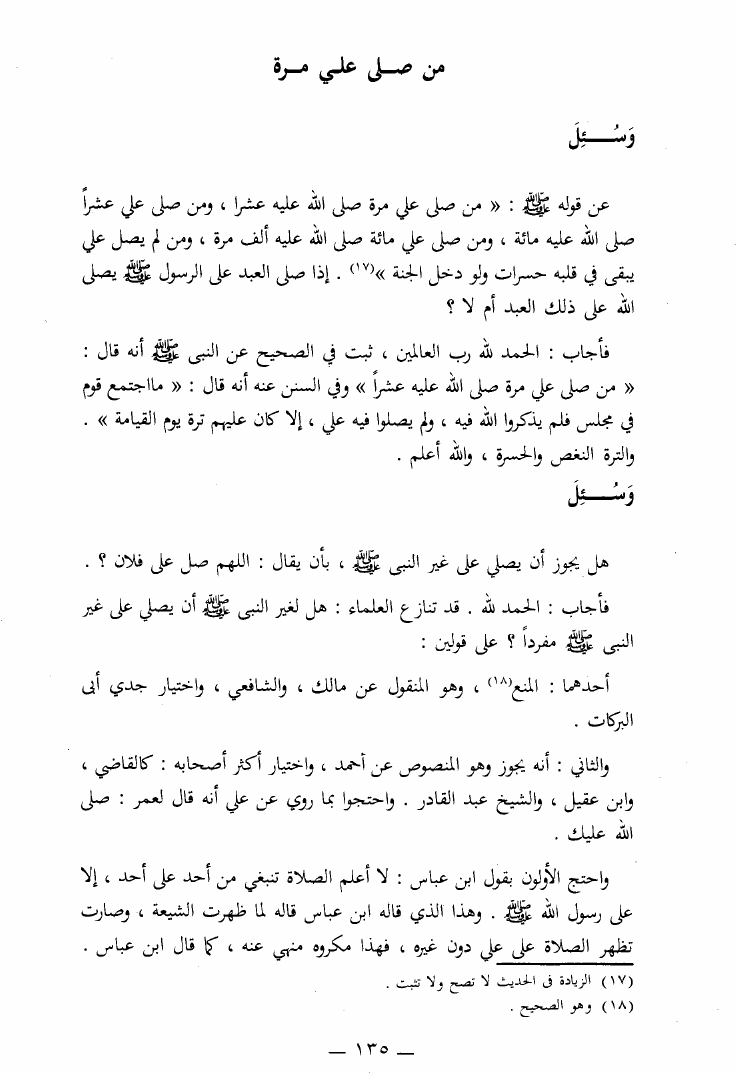 من صلى علي مرة
وَسُئِلَ
عن قوله ﷺ : « من صلى علي مرة صلى الله عليه عشرا ، ومن صلى علي عشراً
صلى الله عليه مائة ، ومن صلى علي مائة صلى الله عليه ألف مرة ، ومن لم يصل علي
يبقى في قلبه حسرات ولو دخل الجنة »(١٧) . إذا صلى العبد على الرسول ﷺ يصلى
الله على ذلك العبد أم لا ؟
فأجاب : الحمد لله رب العالمين ، ثبت في الصحيح عن النبى ﷺ أنه قال :
« من صلى علي مرة صلى الله عليه عشراً » وفي السنن عنه أنه قال : « مااجتمع قوم
في مجلس فلم يذكروا الله فيه ، ولم يصلوا فيه علي ، إلا كان عليهم ترة يوم القيامة » .
والترة النغص والحسرة ، والله أعلم .
وَسُئِلَ
هل يجوز أن يصلي على غير النبى ﷺ ، بأن يقال : اللهم صل على فلان ؟ .
فأجاب : الحمد لله . قد تنازع العلماء : هل لغير النبى ﷺ أن يصلي على غير
النبى ﷺ مفرداً ؟ على قولين :
أحدهما : المنع(١٨) ، وهو المنقول عن مالك ، والشافعي ، واختيار جدي أبى
البركات .
والثاني : أنه يجوز وهو المنصوص عن أحمد ، واختيار أكثر أصحابه : كالقاضي ،
وابن عقيل ، والشيخ عبد القادر . واحتجوا بما روي عن علي أنه قال لعمر : صلى
الله عليك .
واحتج الأولون بقول ابن عباس : لا أعلم الصلاة تنبغي من أحد على أحد ، إلا
على رسول الله ﷺ . وهذا الذي قاله ابن عباس قاله لما ظهرت الشيعة ، وصارت
تظهر الصلاة على علي دون غيره ، فهذا مكروه منهي عنه ، كما قال ابن عباس .
(١٧) الزيادة فى الحديث لا تصح ولا تثبت .
(١٨) وهو الصحيح .
— ١٣٥ —